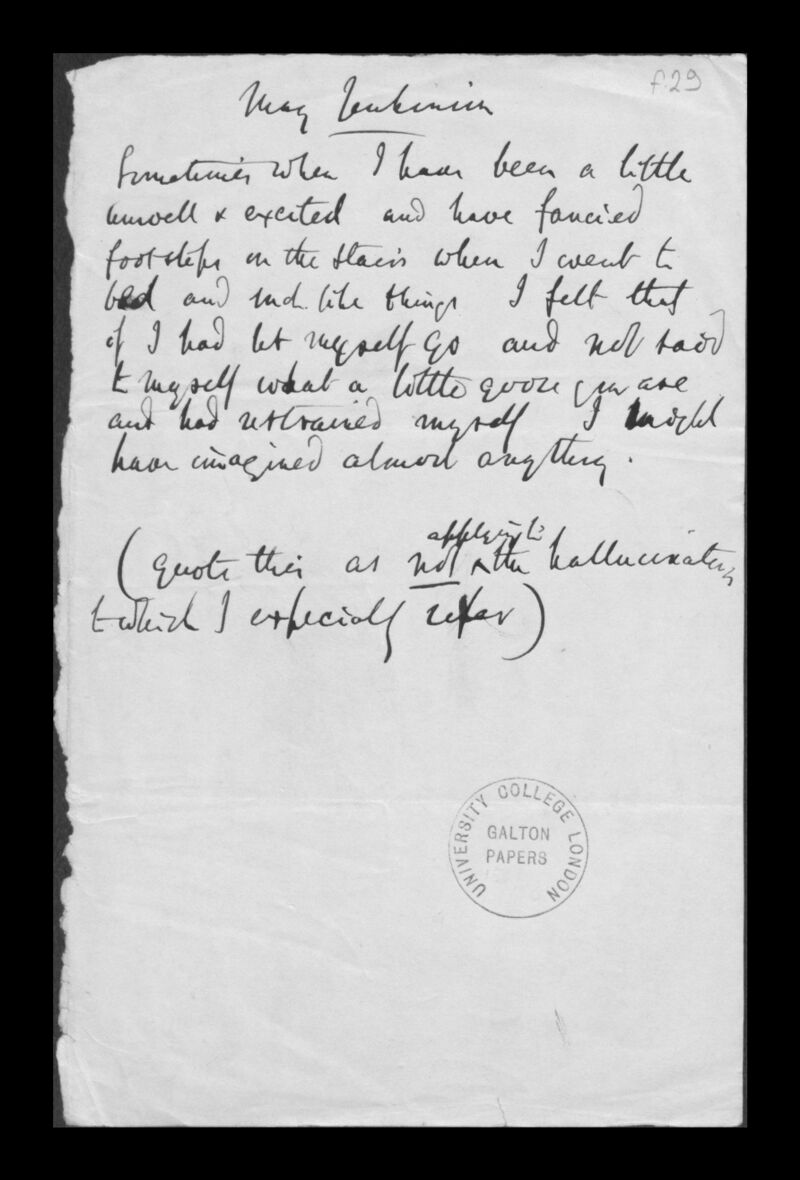 f.29
May Jenkinson
Sometimes when I have been a little
unwell & excited and have fancied
footsteps on the stairs when I went to
bed and such like things I felt that
if I had let myself go and not said
to myself what a little goose you are
and had restrained myself I might
have imagined almost anything.
(quote this as not applying to the hallucinations
to which I especially refer)
UNIVERSITY COLLEGE LONDON
GALTON
PAPERS